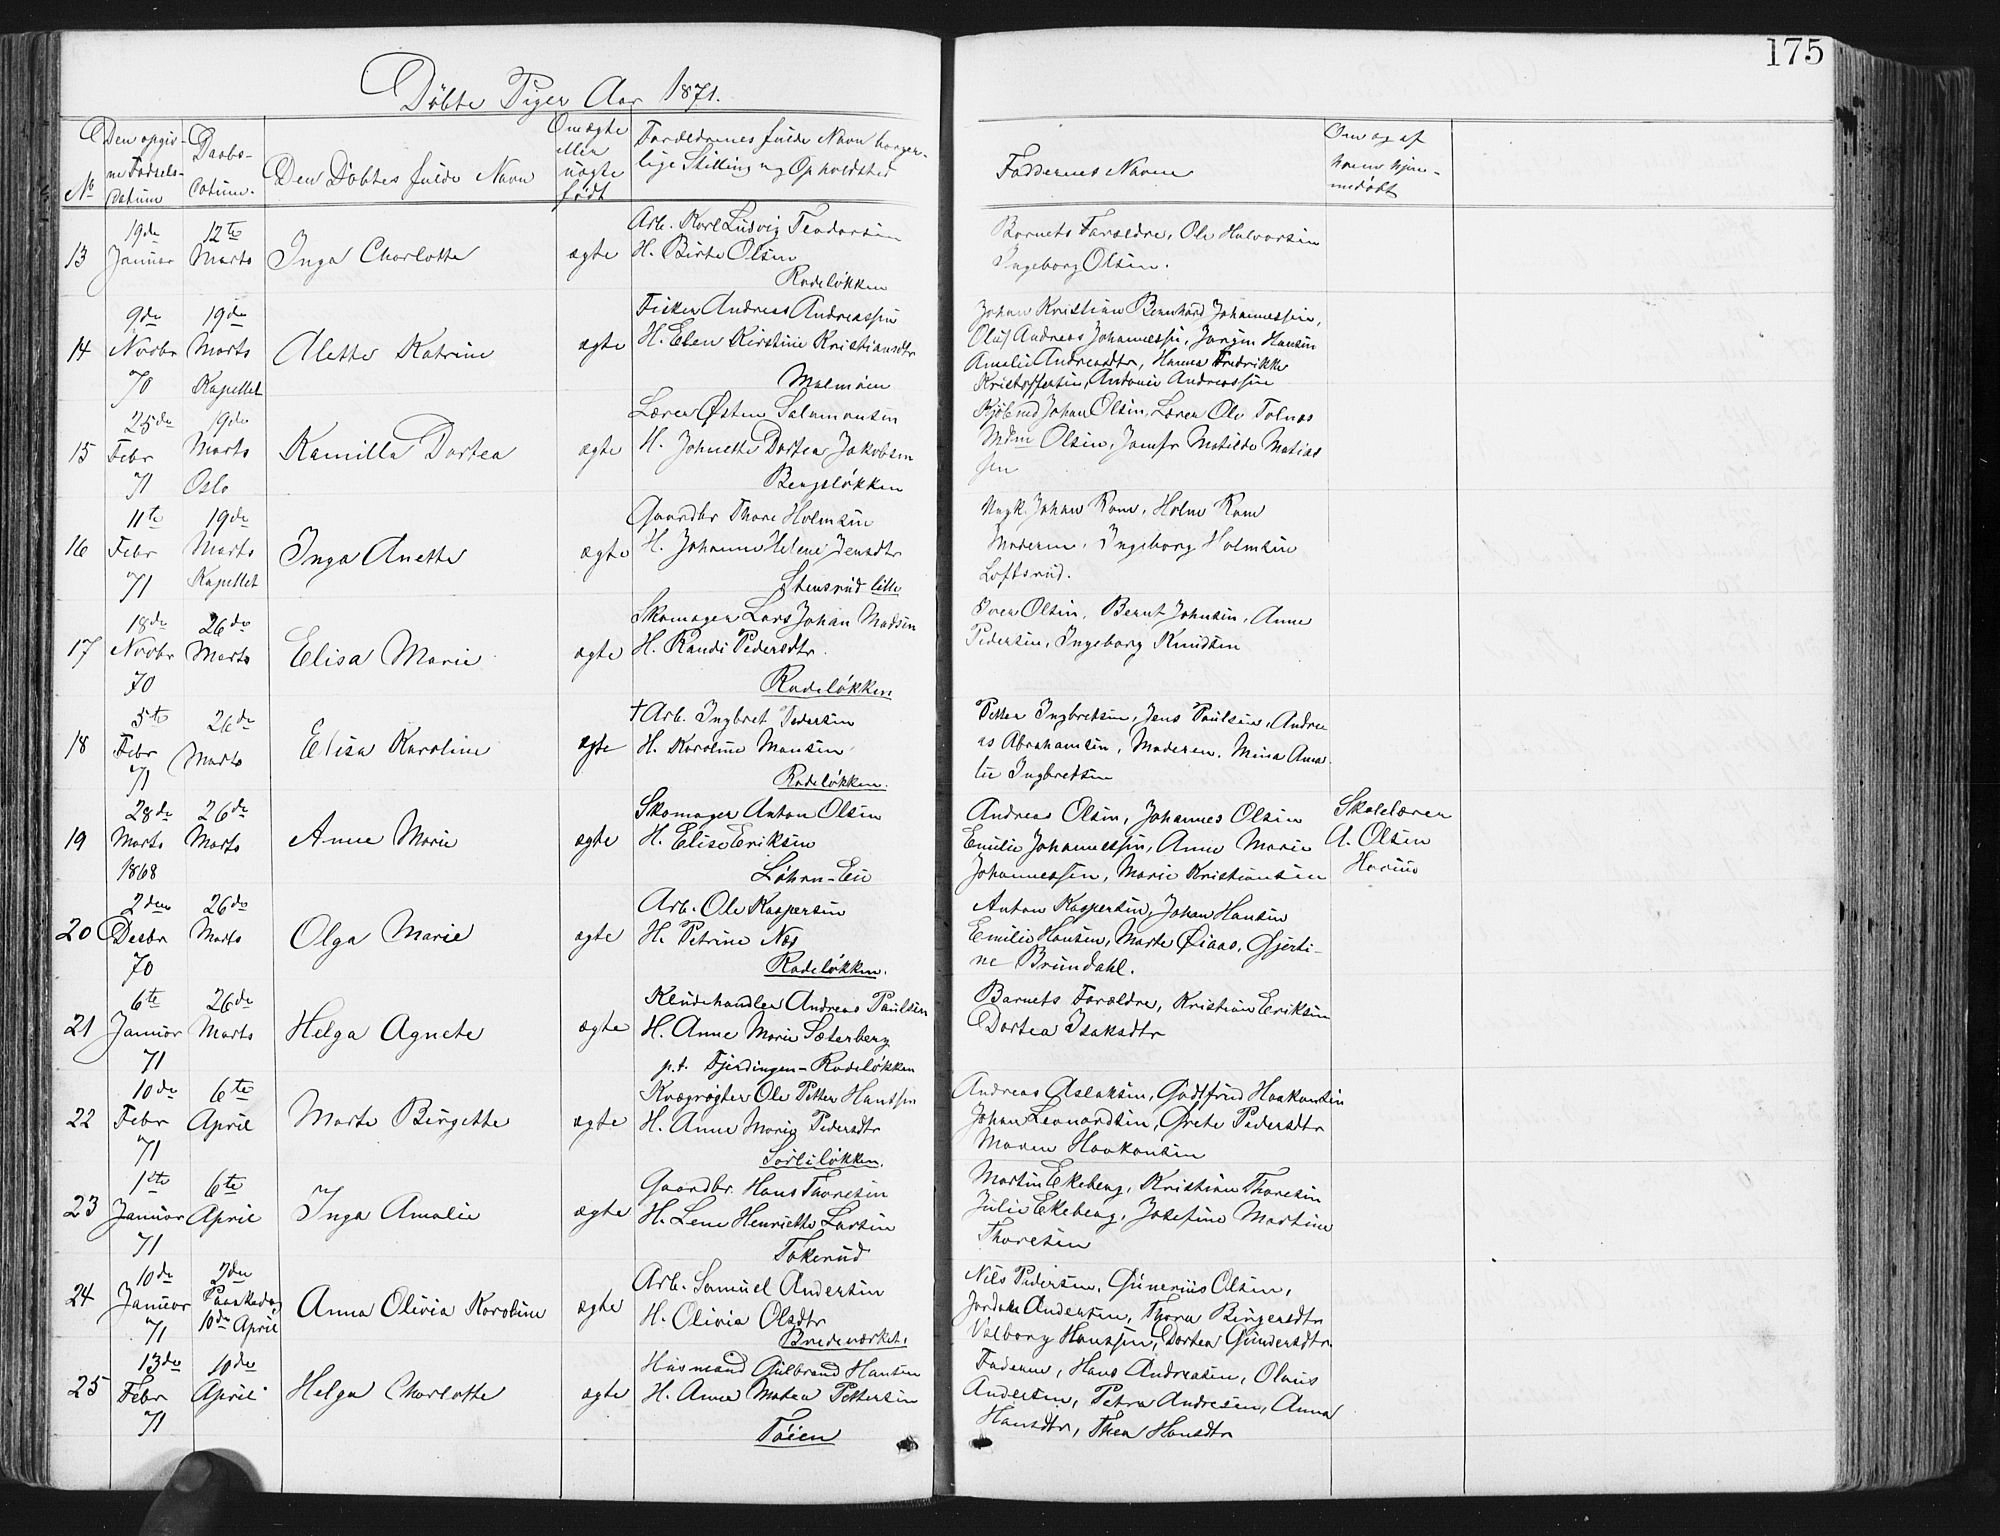 175
Døbte Piger Aar 1871.
No
Den opgivne Fødselsdatum
Daabsdatum.
Den Døbtes fulde Navn
Om ægte eller uægte født
Forældrenes fulde Navn borgerlige Stilling og Opholdsted
Faddernes Navne
Om og af hvem hjemmedøbt
13
19de Januar
12te Marts
Inga Charlotte
ægte
Arb. Karl Ludvig Teodorsen
H. Birte Olsen
Rodeløkken
Barnets Forældre, Ole Halvorsen
Ingeborg Olsen.
14
9de Novbr 70
19de Marts Kapellet
Alette Katrine
ægte
Fisker Andreas Andreassen
H. Elen Kirstine Kristiansdtr
Malmøen
Johan Kristian Bernhard Johannessen,
Oluf Andreas Johannessen, Jørgen Hansen
Amalie Andreasdtr, Hanna Fredrikke
Kristoffersen, Antonie Andreassen
15
25de Febr 71
19de Marts Oslo
Kamilla Dortea
ægte
Lærer Østen Salamonsen
H. Johnette Dortea Jakobsen
Bengsløkken
Kjøbmd Johan Olsen, Lærer Ole Tolnæs
Mdm Olsen, Jomfr Matilde Matias
sen
16
11te Febr 71
19de Marts Kapellet
Inga Anette
ægte
Gaardbr Thore Holmsen
H. Johanne Helene Jensdtr
Stensrud lille
Ungk. Johan Ram, Holm Ram
Moderen, Ingeborg Holmsen
Loftsrud.
17
18de Novbr 70
26de Marts
Elisa Marie
ægte
Skomager Lars Johan Madsen
H. Randi Pedersdtr.
Rodeløkken
Iver Olsen, Bernt Johnsen, Anne
Pedersen, Ingeborg Knudsen
18
5te Febr 71
26de Marts
Elisa Karoline
ægte
† Arb. Ingbret Pedersen
H. Karoline Monsen
Rodeløkken.
Petter Ingbretsen, Jens Paulsen, Andre
as Abrahamsen, Moderen, Mina Ama
lie Ingbretsen
19
28de Marts 1868
26de Marts
Anne Marie
ægte
Skomager Anton Olsen
H. Elise Eriksen
Løhren-Eie
Andreas Olsen, Johannes Olsen
Emilie Johannessen, Anne Marie
Johannessen, Marie Kristiansen
Skolelærer
A. Olsen
20
2den Decbr 70
26de Marts
Olga Marie
ægte
Arb. Ole Kaspersen
H. Petrine Næs
Rodeløkken.
Anton Kaspersen, Johan Hansen
Emilie Hansen, Marte Øiaas, Gjerti-
ne Brundahl.
21
6te Januar 71
26de Marts
Helga Agnete
ægte
Kludehandler Andreas Paulsen
H. Anne Marie Sæterberg
p.t. Fjerdingen-Rodeløkken
Barnets Forældre, Kristian Eriksen
Dortea Isaksdtr
22
10de Febr 71
6te April
Marte Birgette
ægte
Kvægrøgter Ole Petter Hanssen
H. Anne Marie Pedersdtr
Sorliløkken.
Andreas Aslaksen, Godtfred Haakonsen
Johan Leonardsen, Grete Pedersdtr
Maren Haakonsen
23
1ste Januar 71
6te April
Inga Amalie
ægte
Gaardbr. Hans Thoresen
H. Lene Henriette Larsen
Tokerud
Martin Ekeberg, Kristian Thoresen
Julie Ekeberg, Josefine Martine
Thoresen
24
10de Januar 71
2den Paaskedag 10de April
Anna Olivia Karoline
ægte
Arb. Samuel Andersen
H. Olivia Olsdtr
Brødeværket.
Nils Pedersen, Gunerius Olsen,
Andersen, Thora Birgersdtr
Valborg Hanssen, Dortea Gundersdtr.
25
13de Febr 71
10de April
Helga Charlotte
ægte
Husmand Gulbrand Hansen
H. Anne Matea Pettersen
Tøien
Faderen, Hans Andreasen, Olaus
Andersen, Petra Andresen, Anna
Hansdtr, Thea Hansdtr